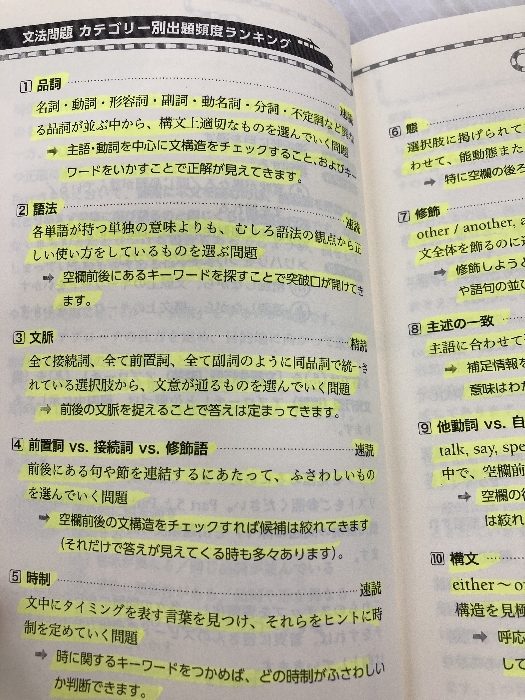 文法問題 カテゴリー別出題頻度ランキング
1 品詞 速読
名詞・動詞・形容詞・副詞・動名詞・分詞・不定詞など
る品詞が並ぶ中から、構文上適切なものを選んでいく問題
➡ 主語・動詞を中心に文構造をチェックすること、およびキー
ワードをいかすことで正解が見えてきます。
2 語法 速読
各単語が持つ単独の意味よりも、むしろ語法の観点から正
しい使い方をしているものを選ぶ問題
➡ 空欄前後にあるキーワードを探すことで突破口が開けてき
ます。
3 文脈 精読
全て接続詞、全て前置詞、全て副詞のように同品詞で統一さ
れている選択肢から、文意が通るものを選んでいく問題
➡ 前後の文脈を捉えることで答えは定まってきます。
4 前置詞 vs. 接続詞 vs. 修飾語 速読
前後にある句や節を連結するにあたって、ふさわしいもの
を選んでいく問題
➡ 空欄前後の文構造をチェックすれば候補は絞れてきます
（それだけで答えが見えてくる時も多々あります）。
5 時制 速読
文中にタイミングを表す言葉を見つけ、それらをヒントに時
制を定めていく問題
➡ 時に関するキーワードをつかめば、どの時制がふさわしい
か判断できます。
6 態
選択肢に掲げられて
わせて、能動態また
➡ 特に空欄の後ろ
7 修飾
other / another, a
文全体を飾るのに適
➡ 修飾しようと
や語句の並び
8 主述の一致
主語に合わせて
➡ 補足情報を
意味はわか
9 他動詞 vs. 自
talk, say, spe
中で、空欄前
➡ 空欄の
は絞れ
10 構文
either～o
構造を見極
➡ 呼応
して